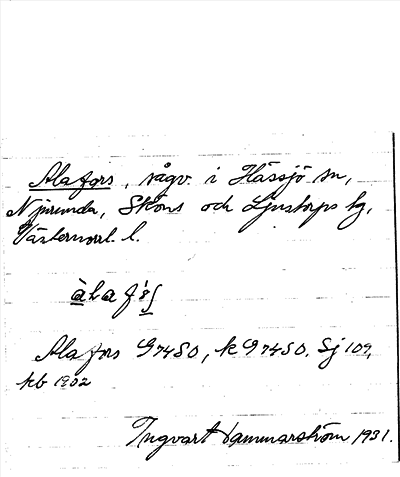 Alafors, sågv. i Hässjö sn,
Njurunda, Sköns och Ljustorps tg,
Västernorrl. l.
Alafors G 9450, k G 9450, Sj 109,
kb 1902
Ingvart Hammarström 1931.